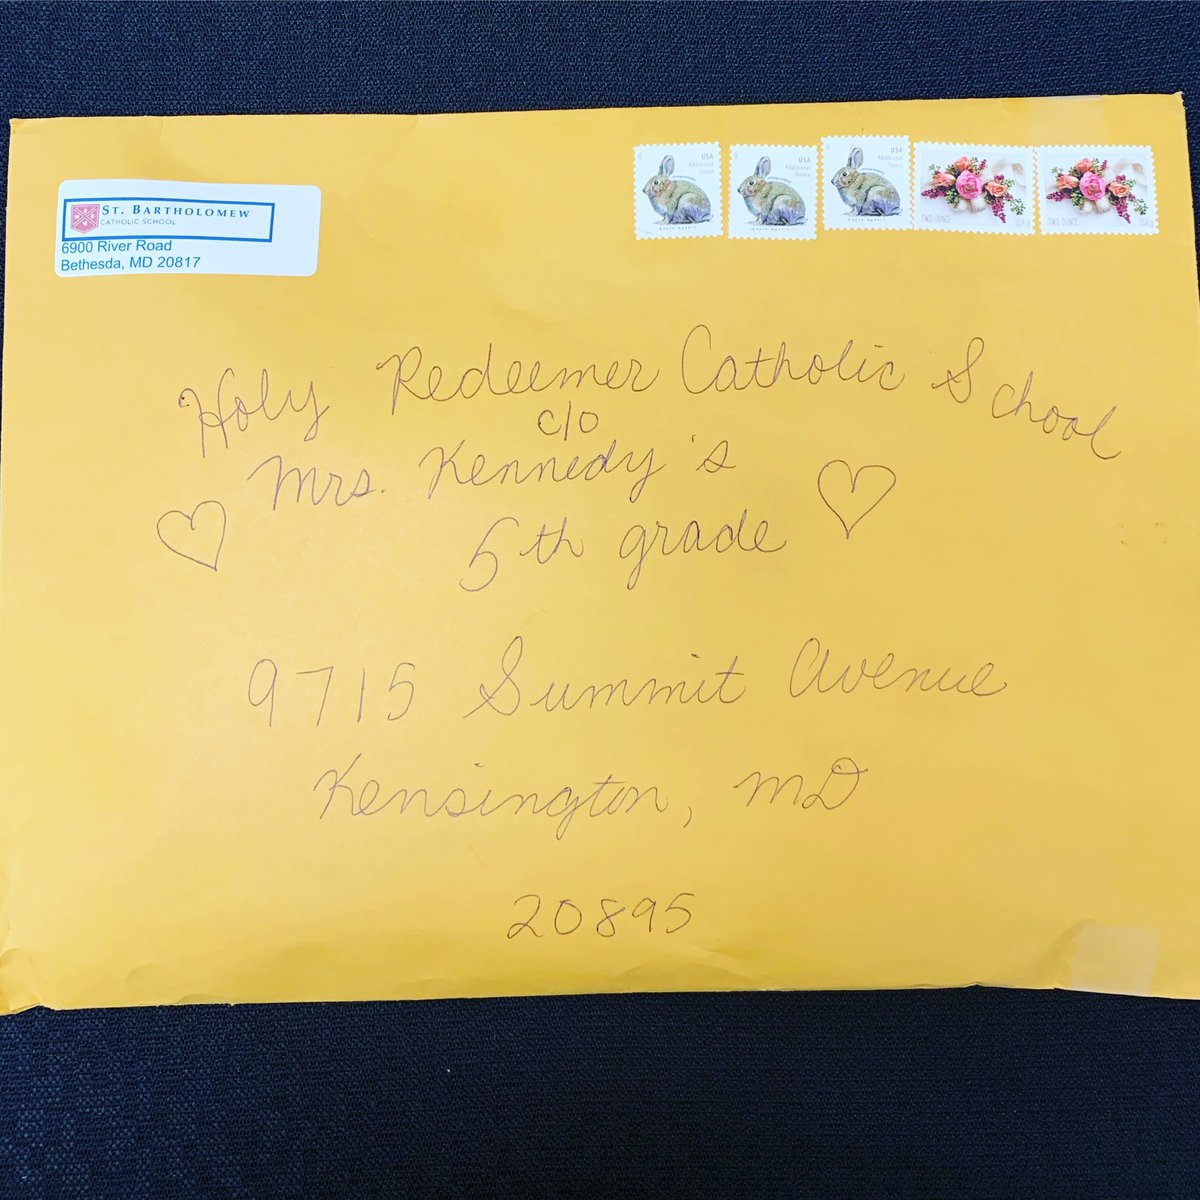 ST. BARTHOLOMEW
CATHOLIC SCHOOL
6900 River Road
Bethesda, MD 20817
USA
Additional
Ounce
USA
Additional
Ounce
USA
Additional
Ounce
TWO OUNCE USA
TWO OUNCE USA
Holy Redeemer Catholic School
c/o
Mrs. Kennedy's
5th grade
9715 Summit Avenue
Kensington, MD
20895